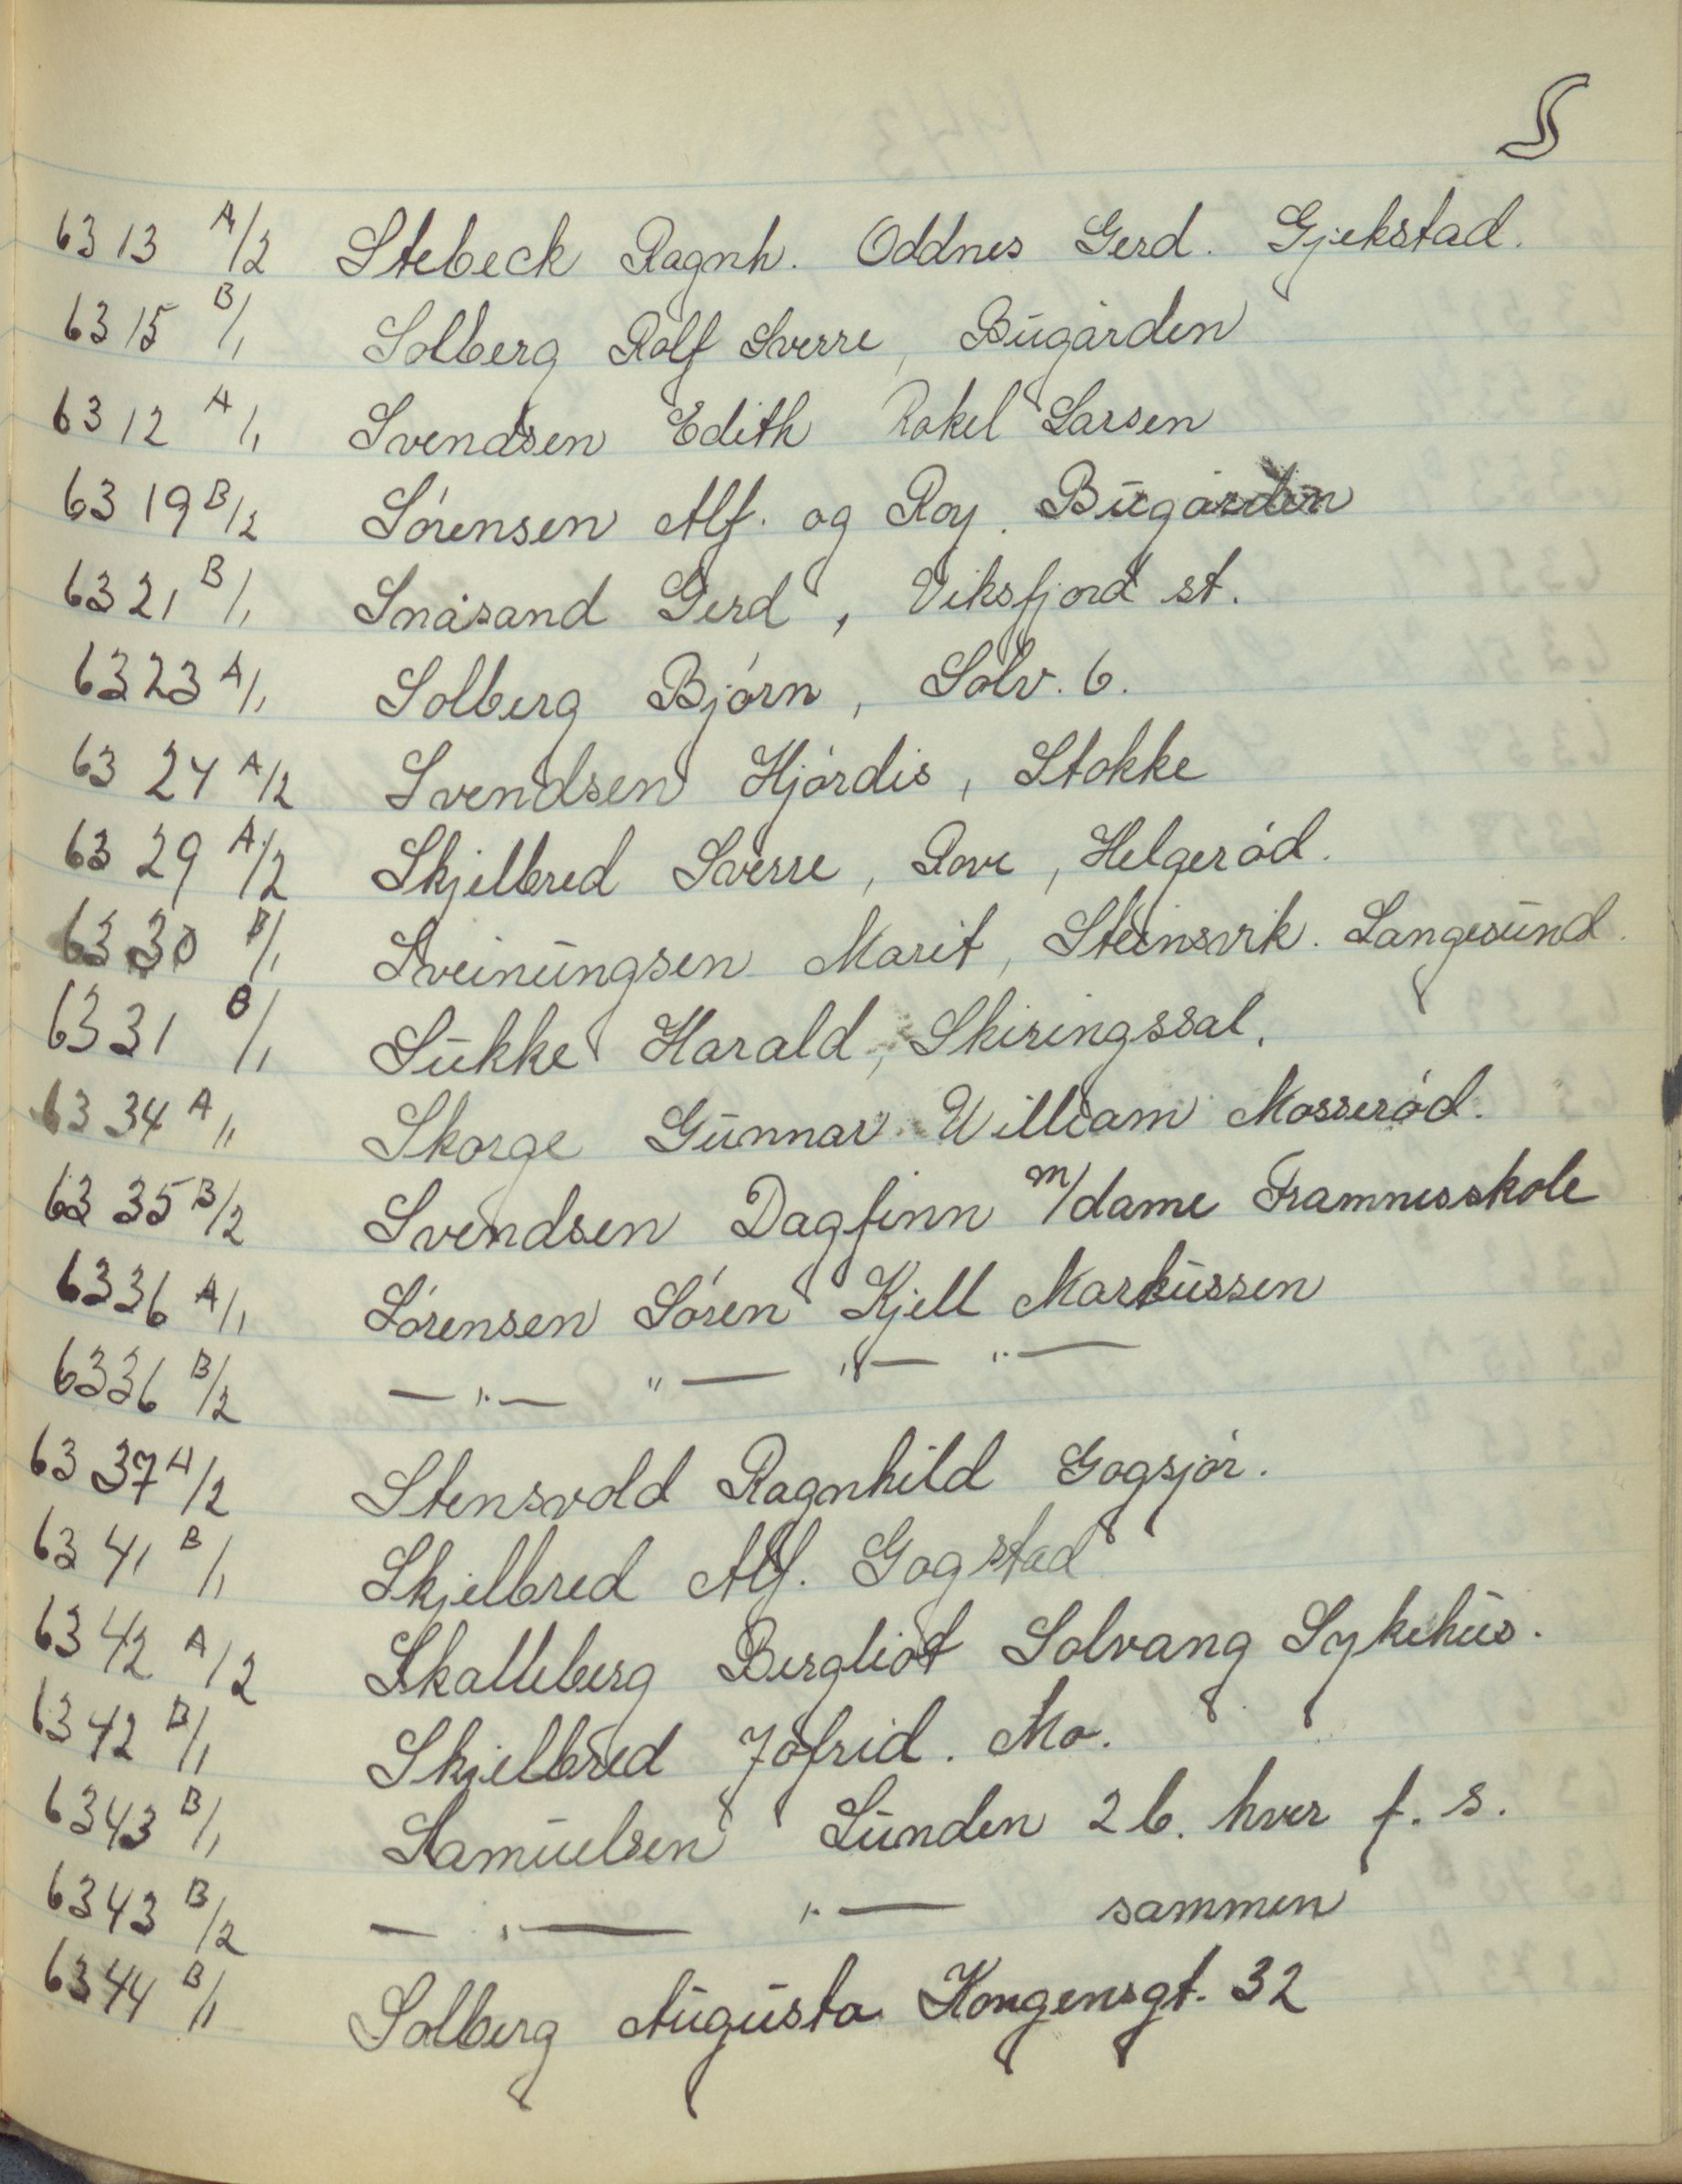 S
6313 A/2 Stebeck Ragnh. Oddnes Gerd. Gjekstad.
6315 B/1 Solberg Rolf Sverre, Bugården
6312 A/1 Svendsen Edith Rakel Larsen
6319 B/2 Sørensen Alf. og Roy. Bugården
6321 B/1 Snåsand Gerd, Viksfjord st.
6323 A/1 Solberg Bjørn, Solv. 6.
6324 A/2 Svendsen Hjørdis, Stokke
6329 A/2 Skjelbred Sverre, Rove, Helgerød.
6330 B/1 Sveinungsen Marit, Steinsvik. Langesund.
6331 B/1 Sukke Harald, Skiringssal.
6334 A/1 Skorge Gunnar William Mosserød.
6335 B/2 Svendsen Dagfinn m/dame Framnesskole
6336 A/1 Sørensen Søren Kjell Markussen
6336 B/2 — " — " — " — " —
6337 A/2 Stensvold Ragnhild Gogsjør.
6341 B/1 Skjelbred Alf. Gogstad
6342 A/2 Skalleberg Bergliot Solvang Sykehus.
6342 B/1 Skjelbred Jofrid. Mo.
6343 B/1 Samuelsen Lunden 2 b. hver f. s.
6343 B/2 — " — " — sammen
6344 B/1 Solberg Augusta Kongensgt. 32